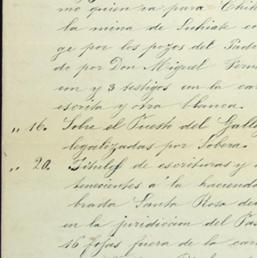 mo quiera para Chih
la mina de Suchiate co
ge por los pozos del Pad
do por Don Miguel Ferna
con y 3 testigos en la car
escrita y otra blanca.
„ 16. Sobre el Puesto del Gall
legalizadas por Sobera.
„ 20. Titulos de escrituras y
tenecientes á la hacienda
brada Santa Rosa de
en la juridicion del Pas
16 fojas fuera de la car